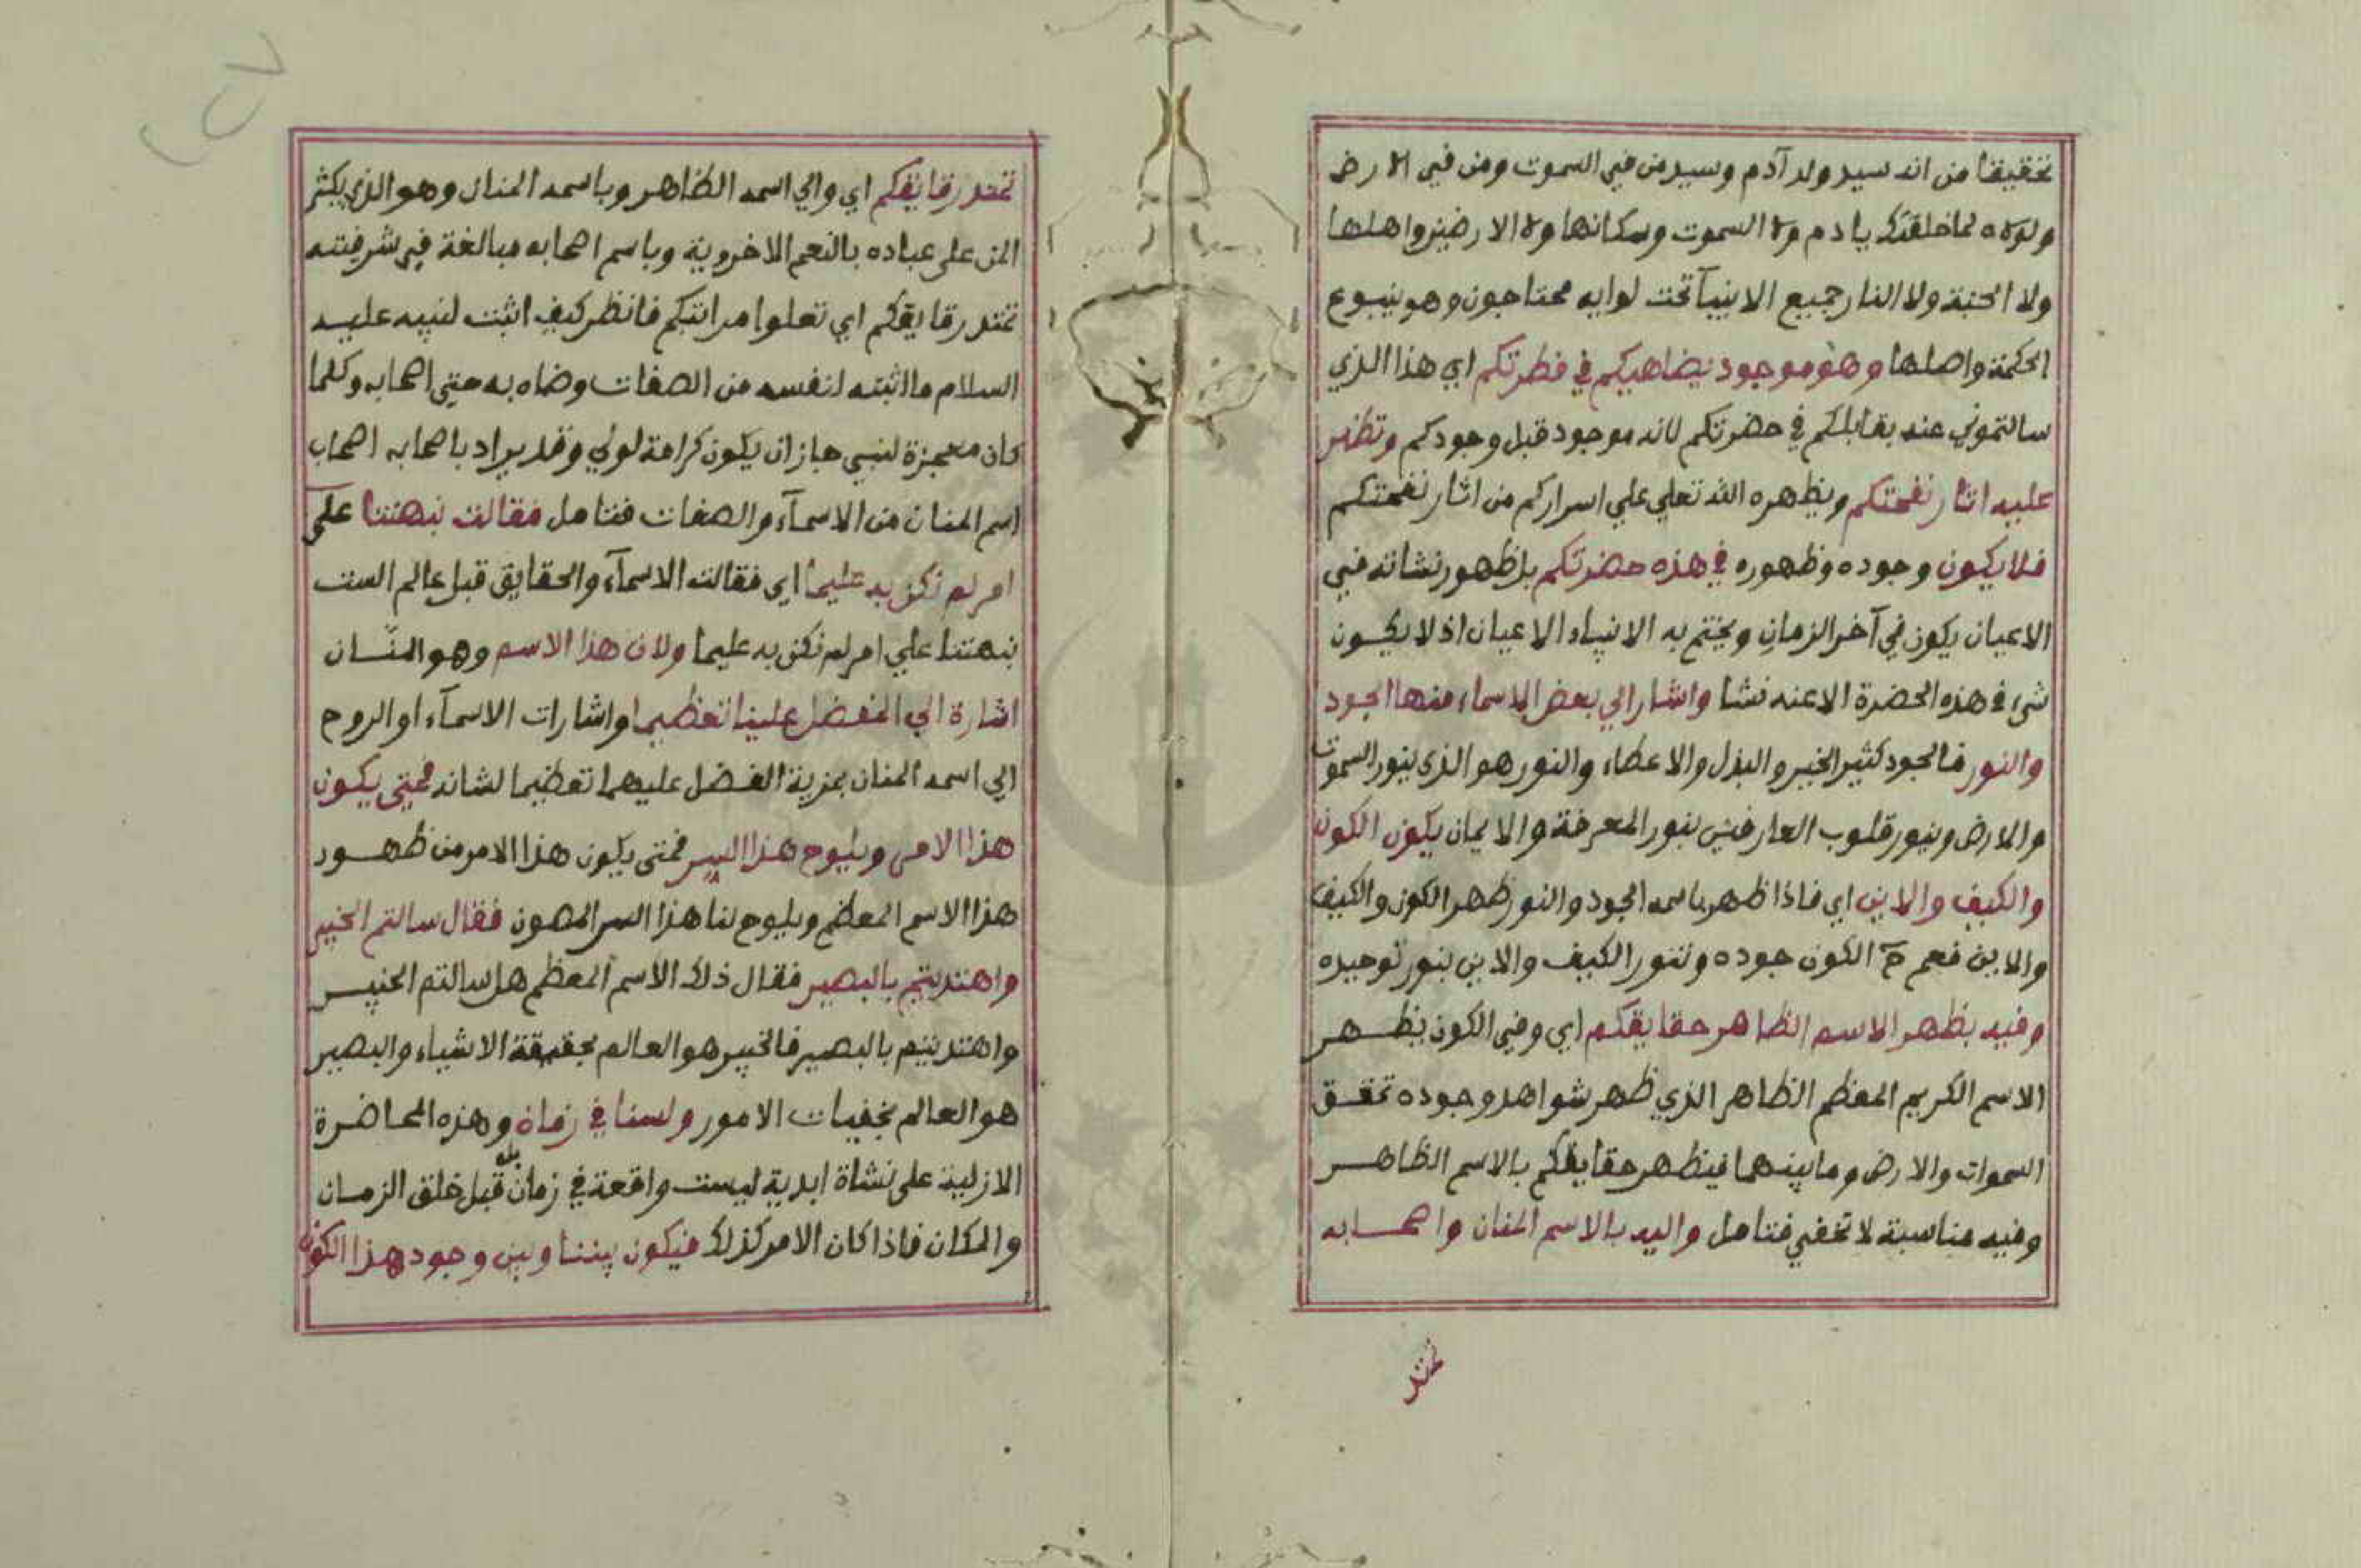 تحقيقنا من انه سيد ولد آدم وسيد من في السموت ومن في الارض
ولولاه لما خلقتك يادم ولا السموت وسكانها ولا الارضين واهلها
ولا الجنة ولا النار جميع الانبيآ تحت لوايه محتاجون وهو ينبوع
الحكمة واصلها وهو موجود يضاهيكم في فطرتكم اي هذا الذي
سالتموني عنه يقابلكم في حضرتكم لانه موجود قبل وجودكم وتظهر
عليه اثار نفحتكم ويظهره الله تعلي علي اسراركم من اثار نفحتكم
فلا يكون وجوده وظهوره في هذه حضرتكم بل ظهور نشاته في
الاعيان يكون في آخر الزمان ويختم به الانبياء الاعيان اذ لا يكون
شيء في هذه الحضرة الا عنه نشا واشار الي بعض الاسماء منها الجود
والنور فالجود كثير الخير والبذل والاعطاء والنور هو الذي ينور السموت
والارض وينور قلوب العارفين بنور المعرفة والايمان يكون الكون
والكيف والاين اي فاذا ظهر باسمه الجود والنور ظهر الكون والكيف
والاين فعم الكون جوده وتنور الكيف والاين بنور توحيده
وفيه يظهر الاسم الظاهر حقايقكم اي وفي الكون يظهر
الاسم الكريم المعظم الظاهر الذي ظهر شواهد وجوده تحقق
السموات والارض وما بينهما فيظهر حقايقكم بالاسم الظاهر
وفيه مناسبة لا تخفي فتامل واليه بالاسم المنان واصحابه
تمتد
تمتد رقايقكم اي والي اسمه الظاهر وباسمه المنان وهو الذي يكثر
المن على عباده بالنعم الاخروية وباسم اصحابه مبالغة في شرفيته
تمتد رقايقكم اي تعلوا مراتبكم فانظر كيف اثبت لنبيه عليه
السلام ما اثبته لنفسه من الصفات وضاه به حتي اصحابه وكلما
كان معجزة لنبي جاز ان يكون كرامة لولي وقد يراد باصحابه اصحاب
اسم المنان من الاسمآء والصفات فتامل فقالت نبهتنا علي
امر لم نكن به عليما اي فقالت الاسمآء والحقايق قبل عالم الست
نبهتنا علي امر لم نكن به عليما ولان هذا الاسم وهو المنّان
اشارة الي المفضل علينا تعظيما واشارات الاسمآء او الروح
الي اسمه المنان بمزية الفضل عليهما تعظيما لشانه فمتي يكون
هذا الامر ويلوح هذا السر فمتى يكون هذا الامر من ظهور
هذا الاسم المعظم ويلوح لنا هذا السر المصون فقال سالتم الخبير
واهتديتم بالبصير فقال ذلك الاسم المعظم هل سالتم الخبير
واهتديتم بالبصير فالخبير هو العالم بحقيقة الاشياء والبصير
هو العالم بخفيات الامور ولسنا في زمان وهذه المحاضرة
الازلية على نشاة ابدية ليست واقعة في زمان بل قبل خلق الزمان
والمكان فاذا كان الامر كذلك فيكون بيننا وبين وجود هذا الكون